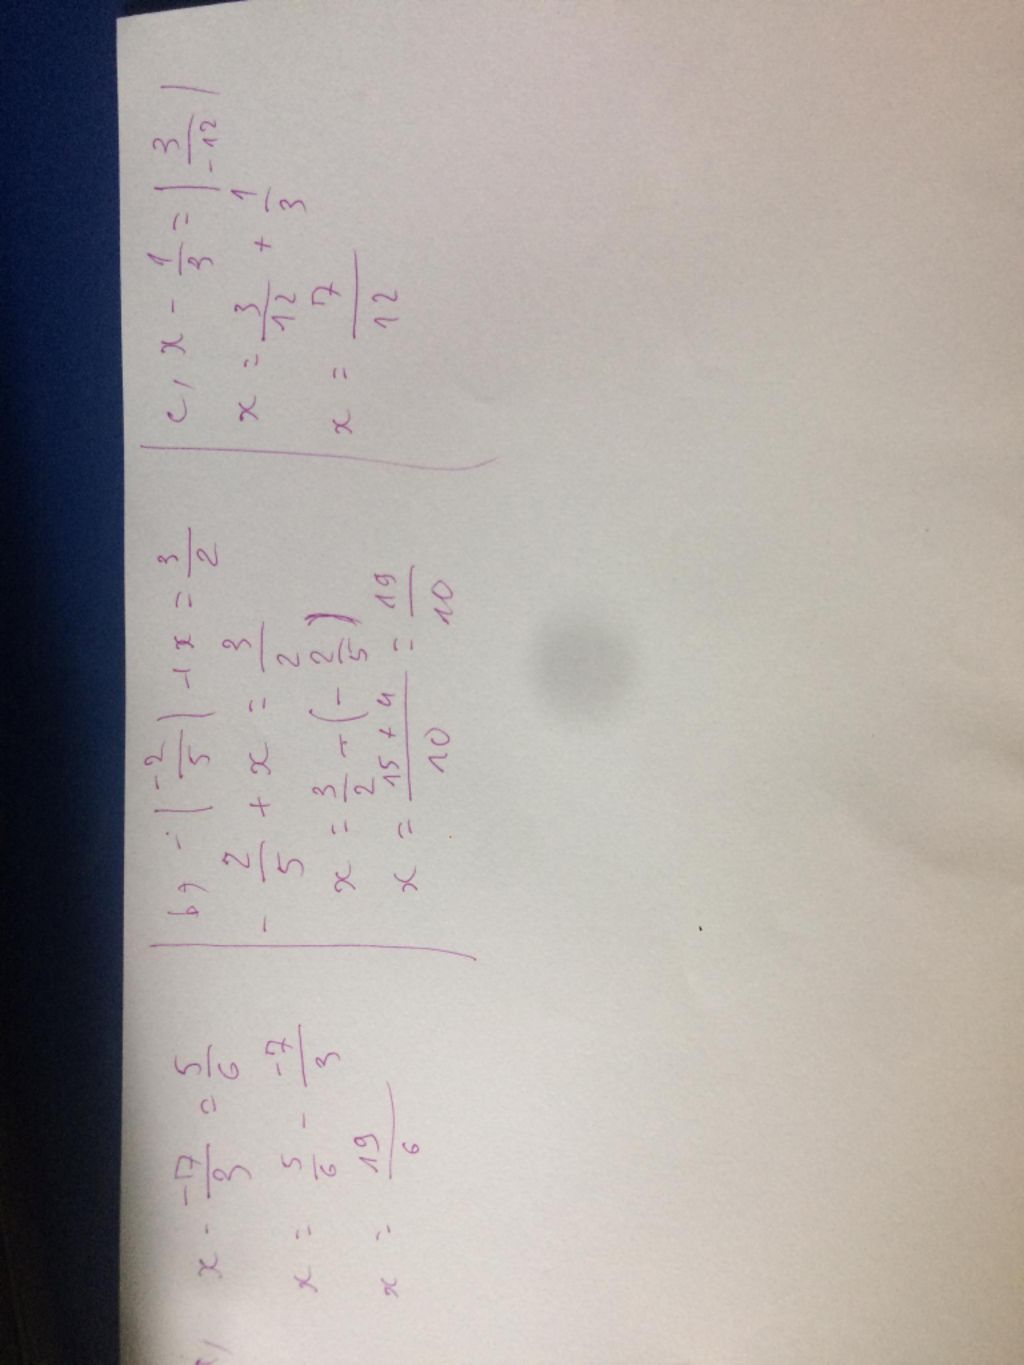 a, x - -7/3 = 5/6
x = 5/6 - -7/3
x = 19/6
b, - |-2/5| + x = 3/2
- 2/5 + x = 3/2
x = 3/2 - (- 2/5)
x = 15 + 4/10 = 19/10
c, x - 1/3 = |3/-12|
x = 3/12 + 1/3
x = 7/12